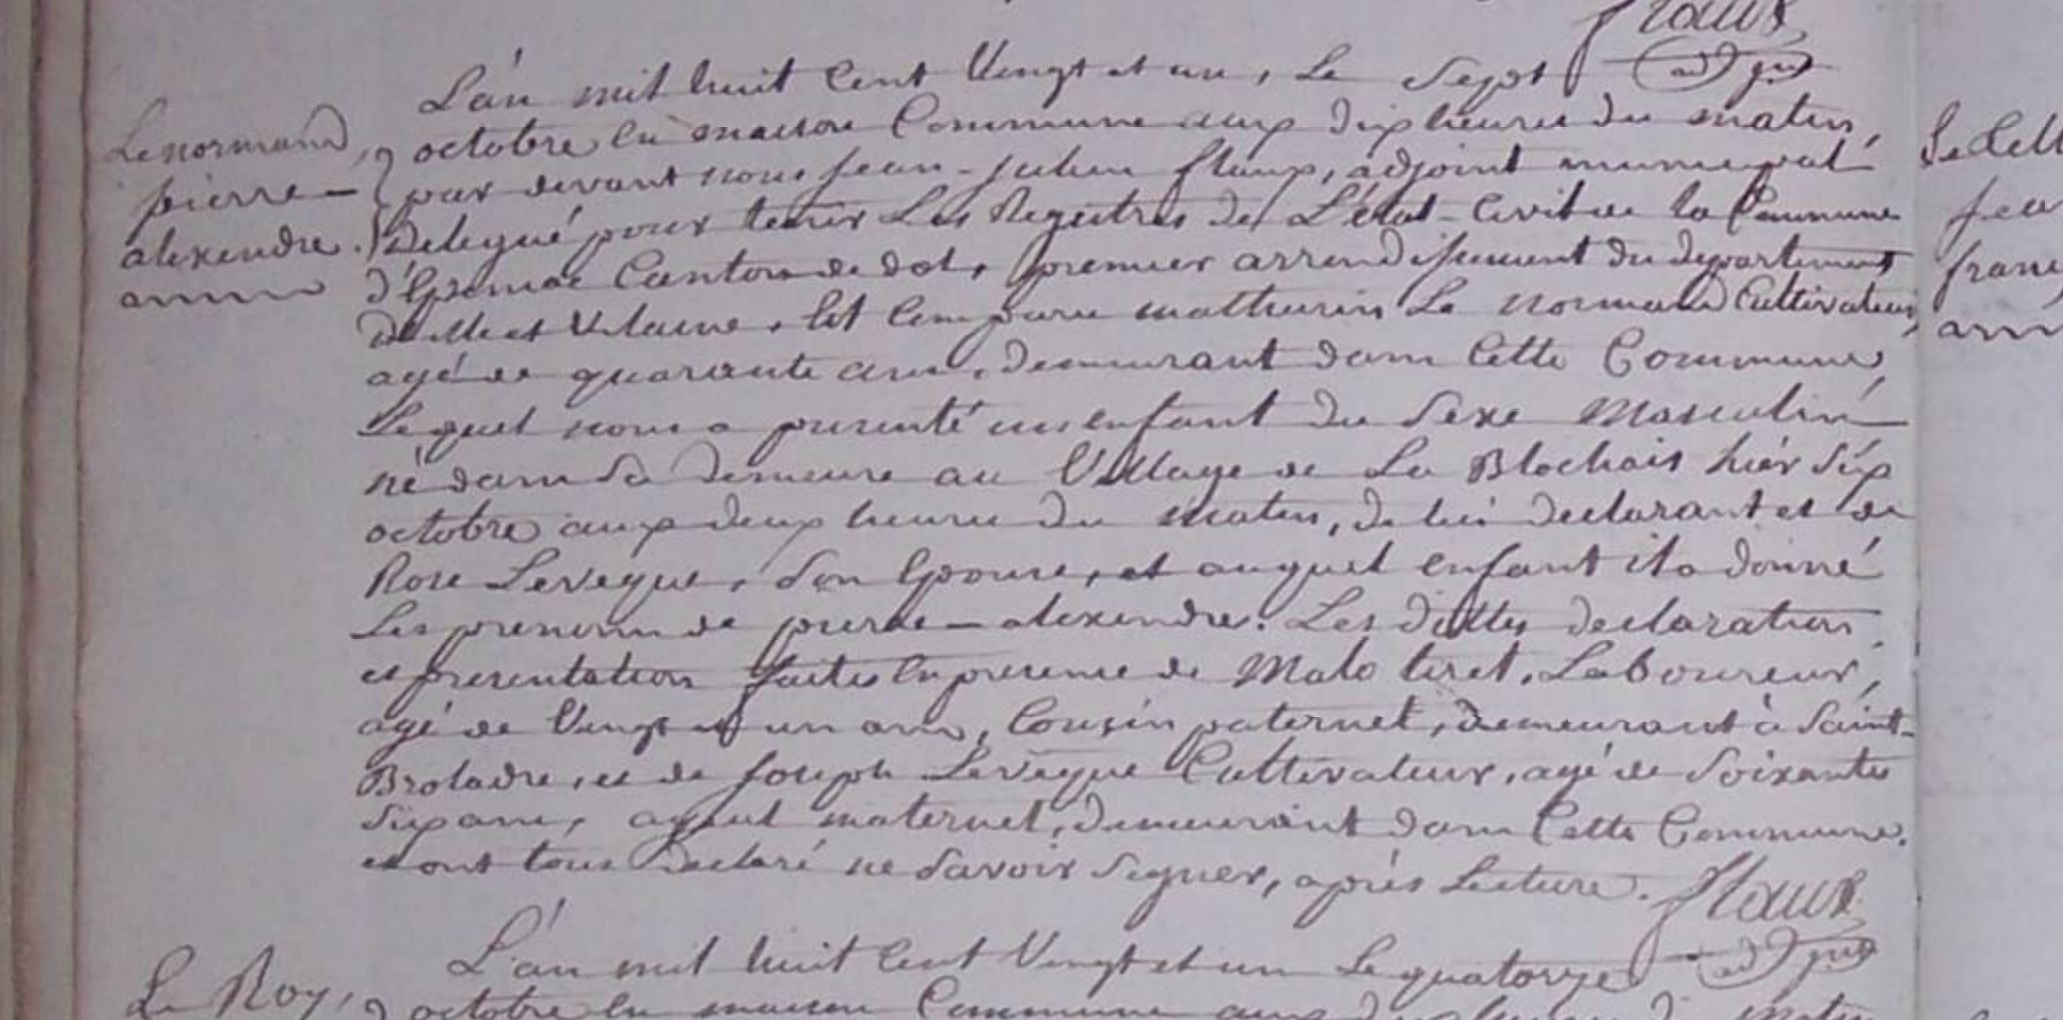 flaux
adj
L'an mil huit cent vingt et un, le sept
octobre en maison Commune aux dix heures du matin,
par devant nous jean-julien flaux, adjoint municipal
Délégué pour tenir Les Registres de L'état-Civil de la Commune
d'Epiniac Canton de dol, premier arrondissement du département
D'ille et Vilaine. Est comparu mathurin Le normand Cultivateur,
agé de quarante ans, demeurant dans Cette Commune,
Lequel nous a presenté un enfant du Sexe Masculin
né dans sa demeure au Village de La Blochais hiér Six
octobre aux deux heures du matin, de lui declarant et de
Rose Leveque, son Epouse, et auquel enfant il a donné
Les prenoms de pierre-alexendre. Les dittes declaration
et presentation faites en presence de Malo tiret, Laboureur,
agé de Vingt et un ans, Cousin paternel, demeurant à Saint-
Broladre, et de joseph Levêque Cultivateur, agé de Soixante
Six ans, ayeul maternel, demeurant dans Cette Commune.
et ont tous declaré ne Savoir Signer, après Lecture. flaux
adj
Lenormand,
pierre-
alexendre.
L'an mil huit cent Vingt et un Le quatorze
Le Roy,
octobre en maison Commune aux dix heures du matin
fran